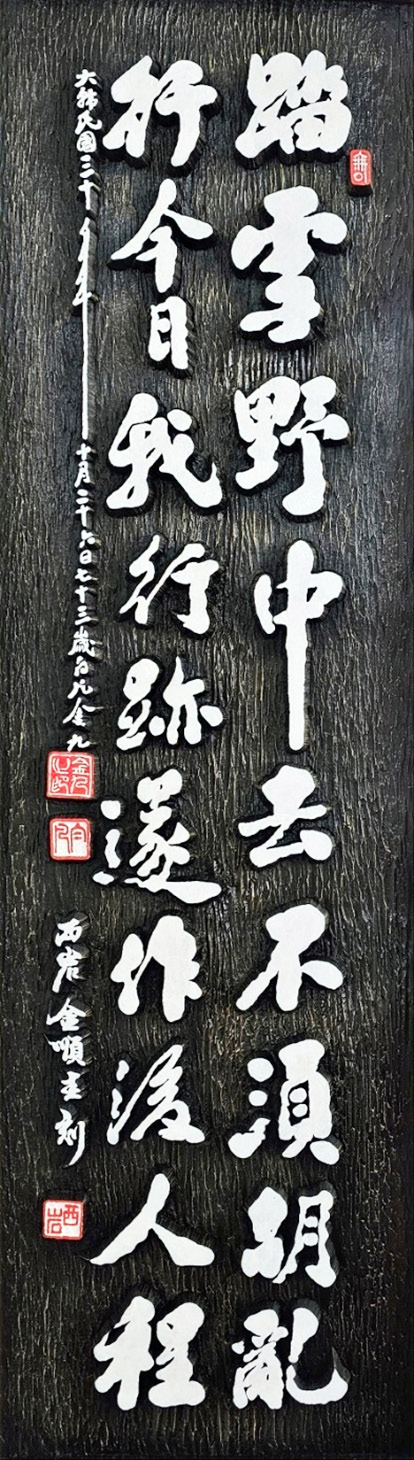 踏雪野中去不須胡亂
行今日我行跡遂作後人程
大韓民國三十年十月二十六日七十三歲白凡金九
金九之印
白凡
西岩 金順 刻
西岩